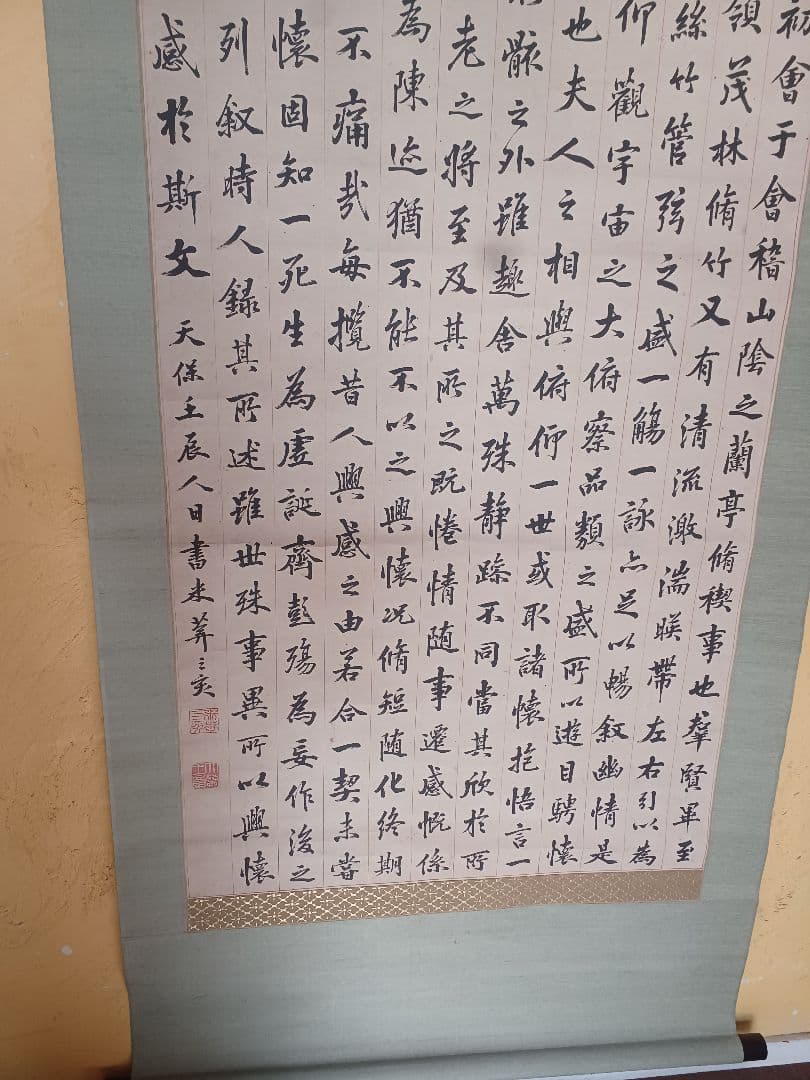 初會于會稽山陰之蘭亭脩禊事也羣賢畢至
領茂林脩竹又有清流激湍暎帶左右引以為
絲竹管弦之盛一觴一詠亦足以暢叙幽情是
仰觀宇宙之大俯察品類之盛所以遊目騁懷
也夫人之相與俯仰一世或取諸懷抱悟言一
骸之外雖趣舍萬殊静躁不同當其欣於所
老之將至及其所之既惓情随事遷感慨係
為陳迹猶不能不以之興懷况脩短随化終期
不痛哉每攬昔人興感之由若合一契未嘗
懷固知一死生為虚誕齊彭殤為妄作後之
列叙時人録其所述雖世殊事異所以興懷
感於斯文 天保壬辰人日書米葊三亥